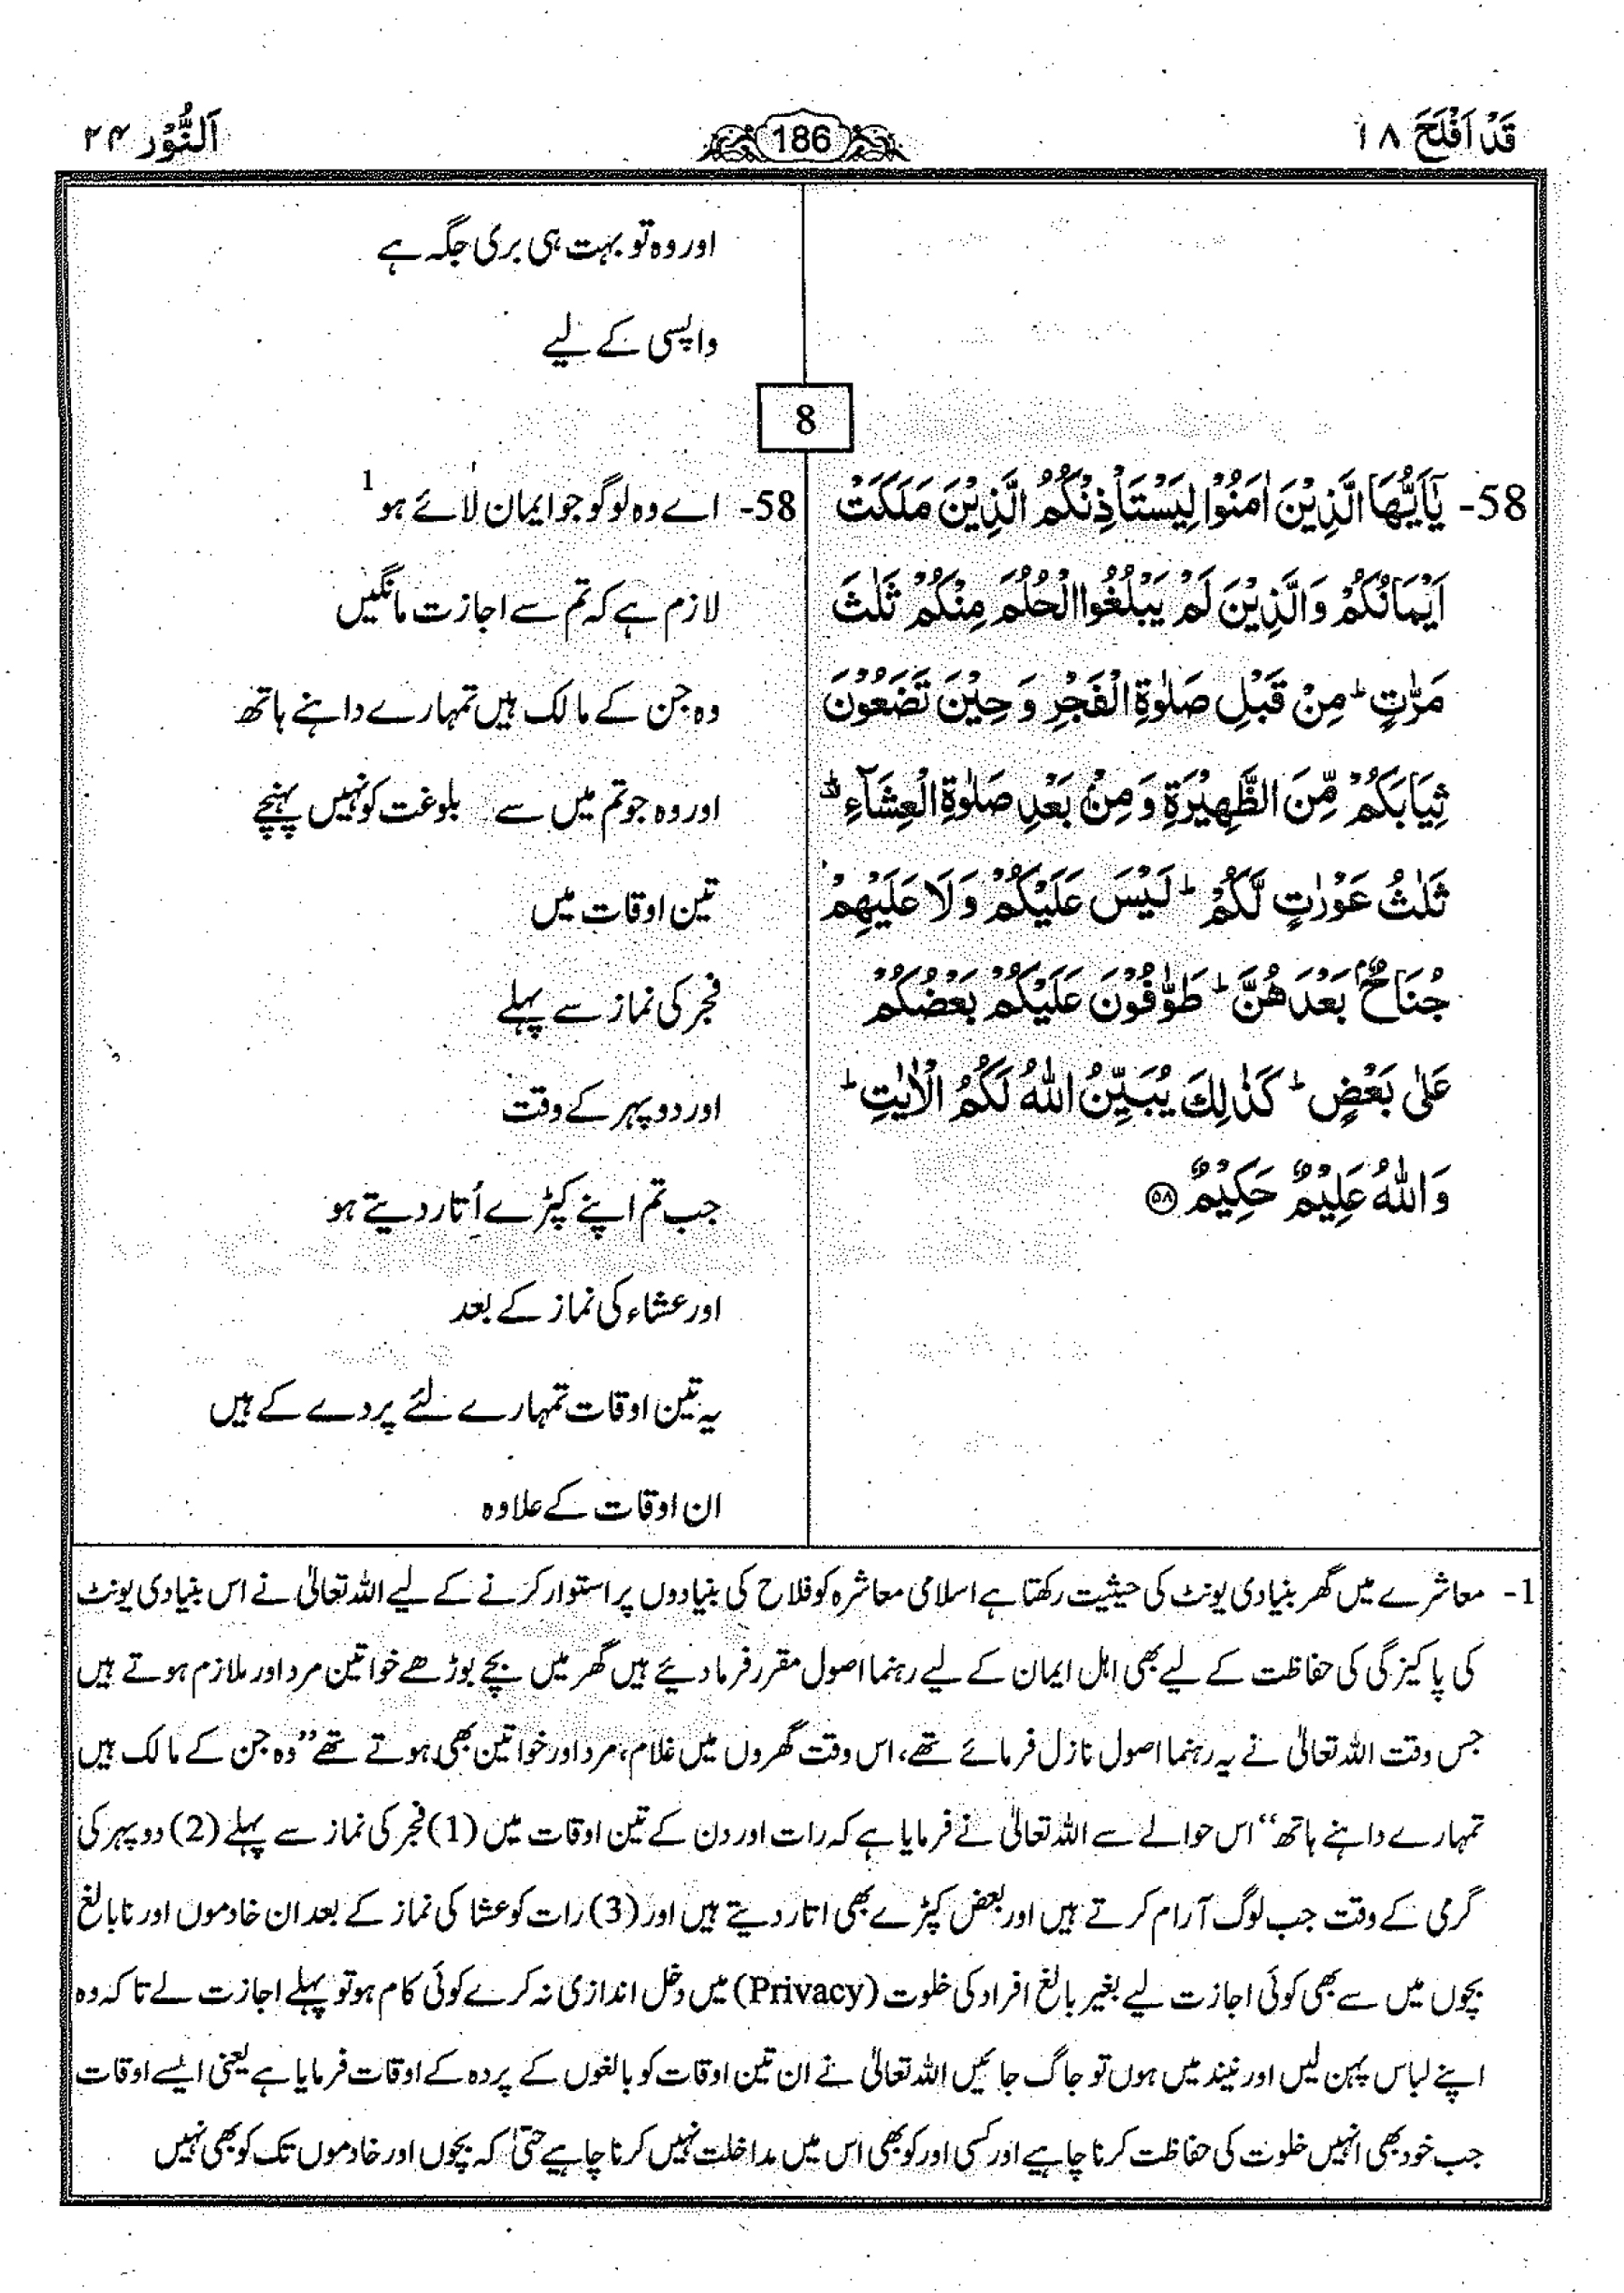 قَدْ اَفْلَحَ ۱۸
186
اَلنُّوْر ۲۴
اور وہ تو بہت ہی بری جگہ ہے
واپسی کے لیے
8
58- يٰۤاَيُّهَا الَّذِيْنَ اٰمَنُوْا لِيَسْتَاْذِنْكُمُ الَّذِيْنَ مَلَكَتْ
اَيْمَانُكُمْ وَالَّذِيْنَ لَمْ يَبْلُغُوا الْحُلُمَ مِنْكُمْ ثَلٰثَ
مَرّٰتٍ ؕ مِنْ قَبْلِ صَلٰوةِ الْفَجْرِ وَ حِيْنَ تَضَعُوْنَ
ثِيَابَكُمْ مِّنَ الظَّهِيْرَةِ وَ مِنْۢ بَعْدِ صَلٰوةِ الْعِشَآءِ ۫ؕ
ثَلٰثُ عَوْرٰتٍ لَّكُمْ ؕ لَيْسَ عَلَيْكُمْ وَ لَا عَلَيْهِمْ
جُنَاحٌۢ بَعْدَهُنَّ ؕ طَوّٰفُوْنَ عَلَيْكُمْ بَعْضُكُمْ
عَلٰى بَعْضٍ ؕ كَذٰلِكَ يُبَيِّنُ اللّٰهُ لَكُمُ الْاٰيٰتِ ؕ
وَ اللّٰهُ عَلِيْمٌ حَكِيْمٌ ۝۵۸
58- اے وہ لوگو جو ایمان لائے ہو 1
لازم ہے کہ تم سے اجازت مانگیں
وہ جن کے مالک ہیں تمہارے داہنے ہاتھ
اور وہ جو تم میں سے بلوغت کو نہیں پہنچے
تین اوقات میں
فجر کی نماز سے پہلے
اور دوپہر کے وقت
جب تم اپنے کپڑے اُتار دیتے ہو
اور عشاء کی نماز کے بعد
یہ تین اوقات تمہارے لئے پردے کے ہیں
ان اوقات کے علاوہ
1- معاشرے میں گھر بنیادی یونٹ کی حیثیت رکھتا ہے اسلامی معاشرہ کو فلاح کی بنیادوں پر استوار کرنے کے لیے اللہ تعالیٰ نے اس بنیادی یونٹ
کی پاکیزگی کی حفاظت کے لیے بھی اہل ایمان کے لیے رہنما اصول مقرر فرما دیئے ہیں گھر میں بچے بوڑھے خواتین مرد اور ملازم ہوتے ہیں
جس وقت اللہ تعالیٰ نے یہ رہنما اصول نازل فرمائے تھے، اس وقت گھروں میں غلام، مرد اور خواتین بھی ہوتے تھے ”وہ جن کے مالک ہیں
تمہارے داہنے ہاتھ“ اس حوالے سے اللہ تعالیٰ نے فرمایا ہے کہ رات اور دن کے تین اوقات میں (1) فجر کی نماز سے پہلے (2) دوپہر کی
گرمی کے وقت جب لوگ آرام کرتے ہیں اور بعض کپڑے بھی اتار دیتے ہیں اور (3) رات کو عشا کی نماز کے بعد ان خادموں اور نابالغ
بچوں میں سے بھی کوئی اجازت لیے بغیر بالغ افراد کی خلوت (Privacy) میں دخل اندازی نہ کرے کوئی کام ہو تو پہلے اجازت لے تاکہ وہ
اپنے لباس پہن لیں اور نیند میں ہوں تو جاگ جائیں اللہ تعالیٰ نے ان تین اوقات کو بالغوں کے پردہ کے اوقات فرمایا ہے یعنی ایسے اوقات
جب خود بھی انہیں خلوت کی حفاظت کرنا چاہیے اور کسی اور کو بھی اس میں مداخلت نہیں کرنا چاہیے حتیٰ کہ بچوں اور خادموں تک کو بھی نہیں